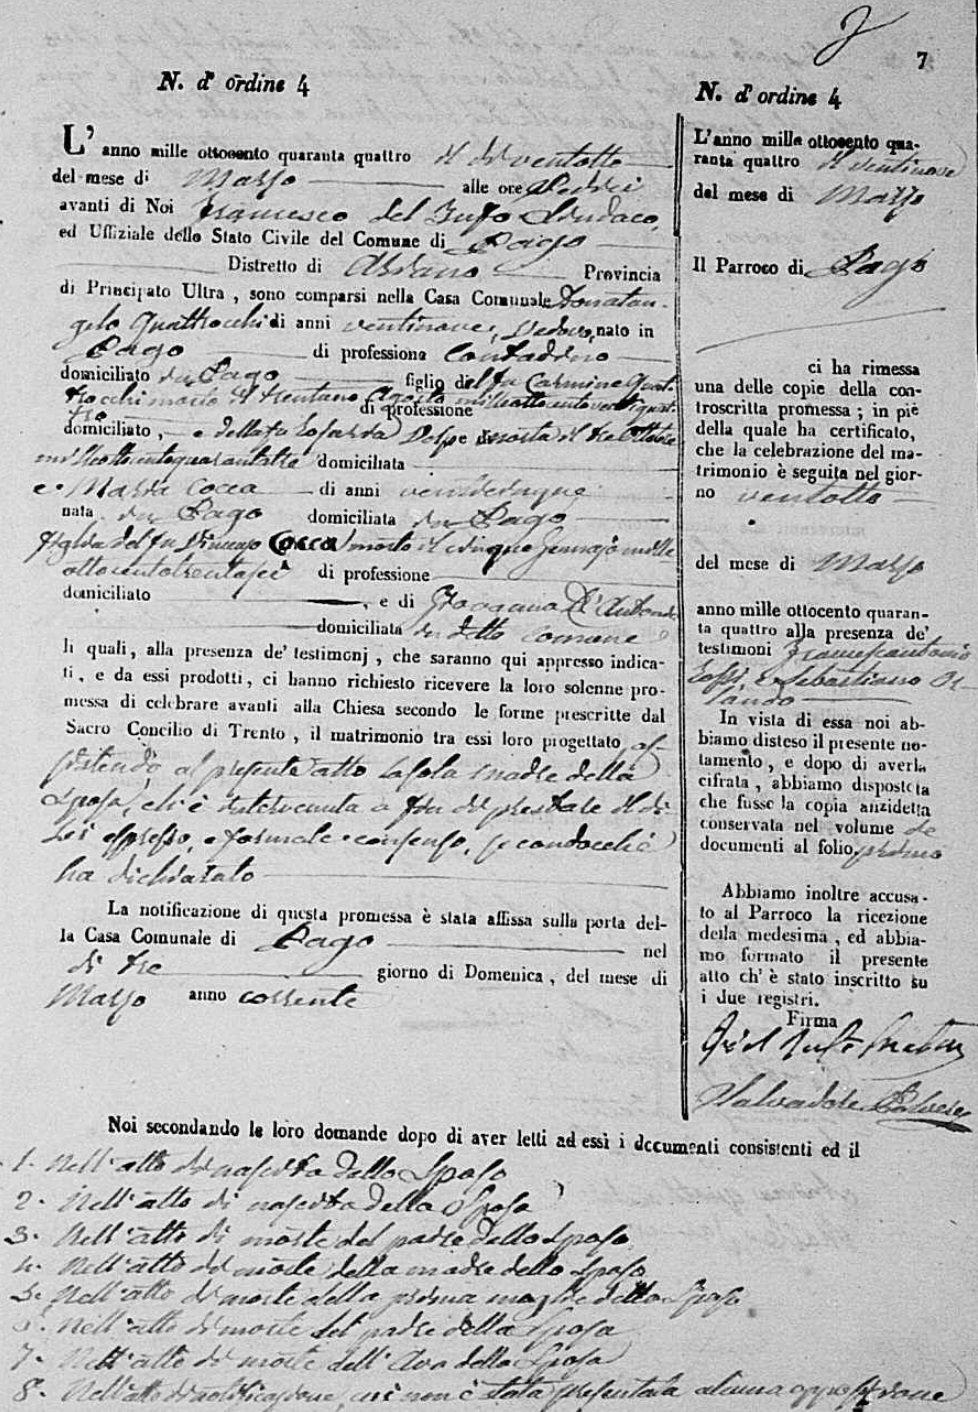 7
N. d' ordine 4
L' anno mille ottocento quaranta quattro il dì ventotto
del mese di Marzo alle ore sedici
avanti di Noi Francesco del Sindaco,
ed Uffiziale dello Stato Civile del Comune di Pago
Distretto di Ariano Provincia
di Principato Ultra, sono comparsi nella Casa Comunale Donatan-
gelo Quattrocchi di anni ventinove, vedovo, nato in
Pago di professione Contadino
domiciliato in Pago figlio del fu Carmine Quat-
trocchi morto il trentuno Agosto milleottocentoventiquat-
tro di professione
domiciliato, e della fu Volpe morta il tre Ottobre
milleottocentoquarantatre domiciliata
e Maria Cocca di anni venticinque
nata in Pago domiciliata in Pago
figlia del fu Vincenzo Cocca morto il cinque Gennajo mille
ottocentotrentasei di professione
domiciliato, e di Giovanna D'Antonio
domiciliata in detto Comune
li quali, alla presenza de' testimonj, che saranno qui appresso indica-
ti, e da essi prodotti, ci hanno richiesto ricevere la loro solenne pro-
messa di celebrare avanti alla Chiesa secondo le forme prescritte dal
Sacro Concilio di Trento, il matrimonio tra essi loro progettato, as-
sistendo al presente atto la sola madre della
Sposa, ch'è intervenuta a fin di prestare il di
lei espresso, e formale consenso, secondocchè
ha dichiarato
La notificazione di questa promessa è stata affissa sulla porta del-
la Casa Comunale di Pago nel
dì tre giorno di Domenica, del mese di
Marzo anno corrente
N. d' ordine 4
L'anno mille ottocento qua-
ranta quattro il ventinove
del mese di Marzo
Il Parroco di Pago
ci ha rimessa
una delle copie della con-
troscritta promessa; in piè
della quale ha certificato,
che la celebrazione del ma-
trimonio è seguita nel gior-
no ventotto
del mese di Marzo
anno mille ottocento quaran-
ta quattro alla presenza de'
testimoni Francescantonio
e Sebastiano Or-
lando
In vista di essa noi ab-
biamo disteso il presente no-
tamento, e dopo di averla
cifrata, abbiamo disposto
che fusse la copia anzidetta
conservata nel volume de
documenti al folio primo
Abbiamo inoltre accusa-
to al Parroco la ricezione
della medesima, ed abbia-
mo formato il presente
atto ch' è stato inscritto su
i due registri.
Firma
Salvadore
Noi secondando le loro domande dopo di aver letti ad essi i documenti consistenti ed il
1. Nell'atto di nascita dello Sposo
2. Nell'atto di nascita della Sposa
3. Nell'atto di morte del padre dello Sposo
4. Nell'atto di morte della madre dello Sposo
5. Nell'atto di morte della prima moglie dello Sposo
6. Nell'atto di morte del padre della Sposa
7. Nell'atto di morte dell'Avo della Sposa
8. Nell'atto di notificazione, cui non è stata presentata alcuna opposizione